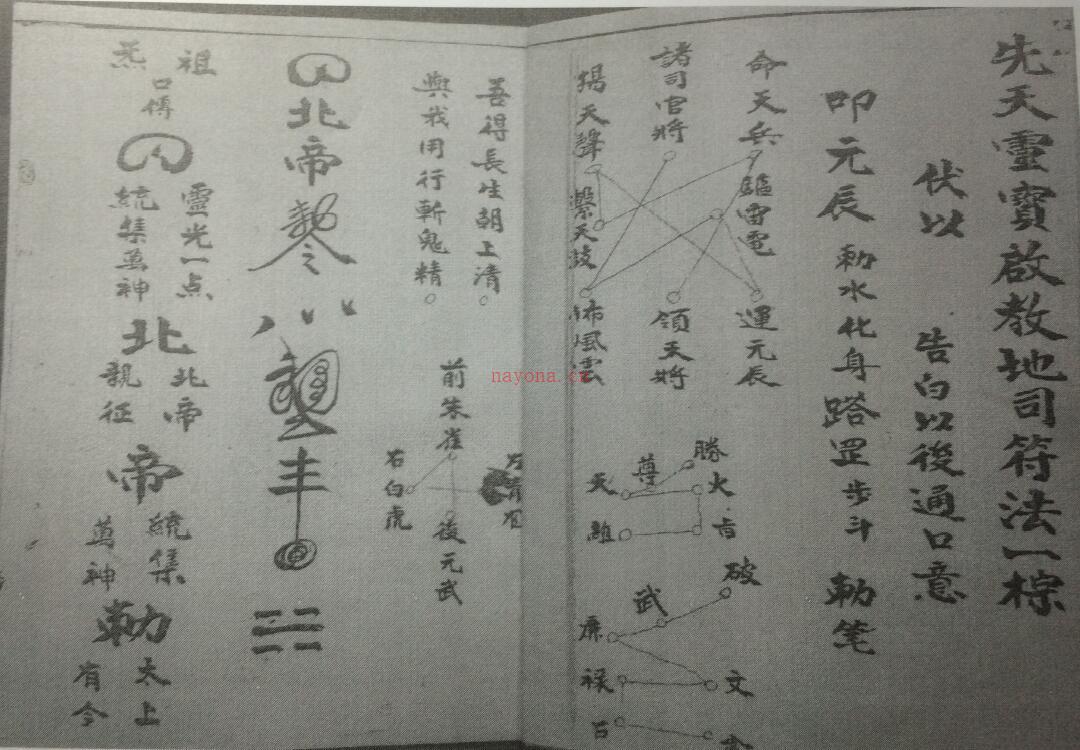 先天靈寶啟教地司符法一棕
伏以 告白以後通口意
叩元辰 勅水化身踏罡步斗 勅笔
命天兵 驅雷電 運元辰
諸司官將 領天將
揚天聲 擊天鼓 佈風雲
勝
尊
天
火
雖
吉
破
武
廉
禄
文
吾得長生朝上清
與我用行斬鬼精
前朱雀
右白虎
後元武
北帝
祖炁
口傳
靈光一点
統集萬神
北
北帝
親征
帝
統集
萬神
勅
太上
有令
nayona.cn